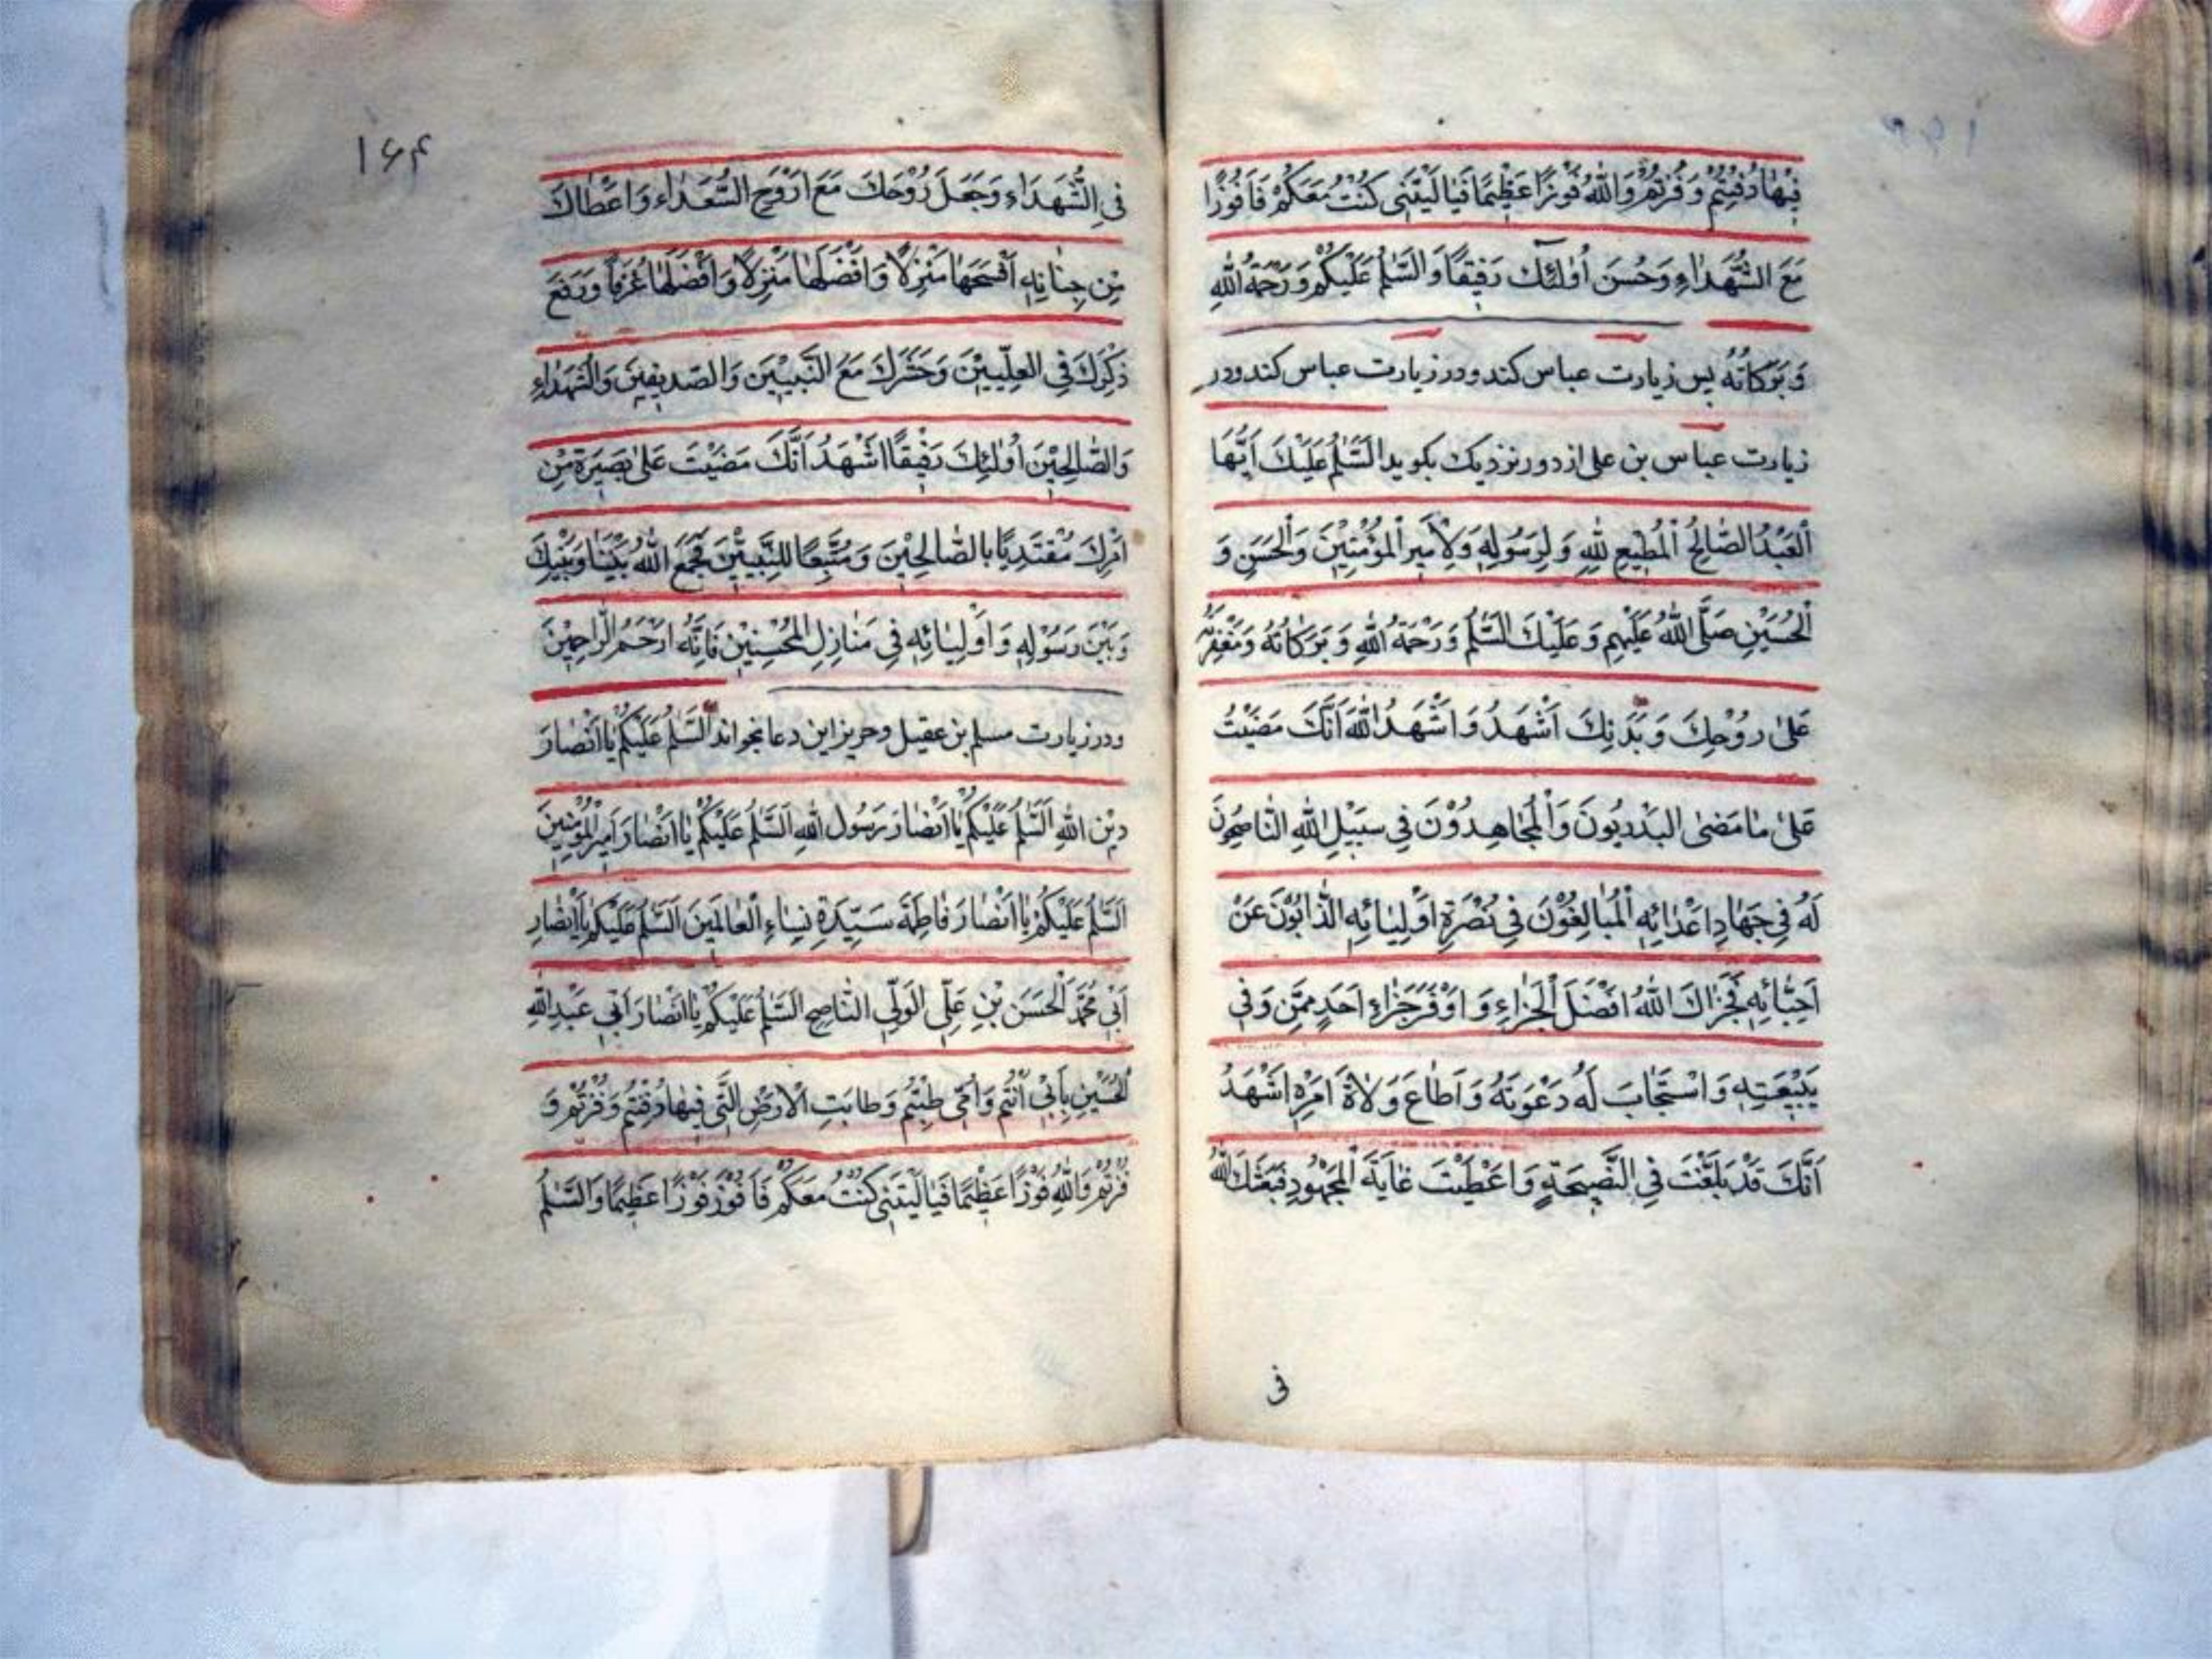 فِيْهٰا دُفِنْتُمْ وَ فُزْتُمْ وَاللّٰهُ فَوْزًا عَظِيْمًا فَيٰا لَيْتَنٖى كُنْتُ مَعَكُمْ فَاَفُوْزًا
مَعَ الشُّهَدٰاءِ وَحُسَنَ اُولٰئِكَ رَفِيْقًا وَالسَّلٰمُ عَلَيْكُمْ وَرَحْمَةُ اللّٰهِ
وَ بَرَكٰاتُهُ پس زيارت عباس كند و در زيارت عباس كند و در
زيارت عباس بن على از دور نزديك بكويد السَّلٰمُ عَلَيْكَ اَيُّهَا
الْعَبْدُ الصّٰالِحُ الْمُطِيْعِ لِلّٰهِ وَ لِرَسُوْلِهِ وَ لِاَمِيْرِ الْمُؤْمِنِيْنَ وَالْحَسَنِ وَ
الْحُسَيْنِ صَلَّى اللّٰهُ عَلَيْهِمِ وَ عَلَيْكَ السَّلٰمُ وَ رَحْمَةُ اللّٰهِ وَ بَرَكٰاتُهُ وَ مَغْفِرَتُهُ
عَلىٰ رُوْحِكَ وَ بَدَنِكَ اَشْهَدُ وَ اَشْهَدُ اللّٰهَ اَنَّكَ مَضَيْتُ
عَلىٰ مٰا مَضىٰ الْبَدْرِيُوْنَ وَ الْمُجٰاهِدُوْنَ فِى سَبِيْلِ اللّٰهِ النّٰاصِحُوْنَ
لَهُ فِى جِهٰادِ اَعْدٰائِهِ الْمُبٰالِغُوْنَ فِى نُصْرَةِ اَوْلِيٰائِهِ الذّٰابُّوْنَ عَنْ
اَحِبّٰائِهِ فَجَزٰاكَ اللّٰهُ اَفْضَلَ الْجَزٰاءِ وَ اَوْفَرَ جَزٰاءِ اَحَدٍ مِمَّنِ وَفىٰ
بَبِيْعَتِهِ وَ اسْتَجٰابَ لَهُ دَعْوَتَهُ وَ اَطٰاعَ وَلٰاةَ اَمْرِهِ اَشْهَدُ
اَنَّكَ قَدْ بَلَغْتَ فِى النَّصِيْحَةِ وَ اَعْطَيْتَ غٰايَةَ الْمَجْهُوْدِ فَبَعَثَكَ اللّٰهُ
فى
۱۶۴
فِى الشُّهَدٰاءِ وَجَعَلَ رُوْحَكَ مَعَ اَرْوٰحِ السُّعَدٰاءِ وَ اَعْطٰاكَ
مِنْ جِنٰانِهِ اَفْسَحَهٰا مَنْزِلًا وَ اَفْضَلَهٰا مَنْزِلًا وَ اَفْضَلَهٰا غُرَفاً وَ رَفَعَ
ذِكْرَكَ فِى الْعِلِّيِيْنَ وَحَشَرَكَ مَعَ النَّبِيِيْنَ وَالصِّدِيْقِيْنَ وَالشُّهَدٰاءِ
وَالصّٰلِحِيْنَ اُوْلٰئِكَ رَفِيْقًا اَشْهَدُ اَنَّكَ مَضَيْتَ عَلىٰ بَصِيْرَةٍ مِنْ
اَمْرِكَ مُقْتَدِيًا بِالصّٰالِحِيْنَ وَ مُتَّبِعًا لِلنَّبِيّيْنَ فَجَمَعَ اللّٰهُ بَيْنَنٰا وَبَيْنَكَ
وَبَيْنَ رَسُوْلِهِ وَ اَوْلِيٰائِهِ فِى مَنٰازِلِ الْمُحْسِنِيْنَ فَاِنَّهُ اَرْحَمُ الرّٰاحِمِيْنَ
و در زيارت مسلم بن عقيل و حريز اين دعا بخواند اَلسَّلٰمُ عَلَيْكُمْ يٰا اَنْصٰارَ
دِيْنِ اللّٰهِ اَلسَّلٰمُ عَلَيْكُمْ يٰا اَنْصٰارَ رَسُوْلِ اللّٰهِ السَّلٰمُ عَلَيْكُمْ يٰا اَنْصٰارَ اَمِيْرِالْمُؤْمِنِيْنَ
اَلسَّلٰمُ عَلَيْكُمْ يٰا اَنْصٰارَ فٰاطِمَةَ سَيِّدَةِ نِسٰاءِ الْعٰالَمِيْنَ اَلسَّلٰمُ عَلَيْكُمْ يٰا اَنْصٰارِ
اَبِى مُحَمَّدَ الْحَسَنَ بْنِ عَلِّى الْوَلِّى النّٰاصِحِ السَّلٰمُ عَلَيْكُمْ يٰا اَنْصٰارَ اَبِى عَبْدِاللّٰهِ
الْحُسَيْنِ بِاَبِى اَنْتُمْ وَ اُمِّى طِبْتُمْ وَ طٰابَتِ الْاَرْضِ الَّتِى فِيْهٰا دُفِنْتُمْ وَ فُزْتُمْ وَ
فُزْتُمْ وَاللّٰهِ فَوْزًا عَظِيْمًا فَيٰا لَيْتَنِى كُنْتُ مَعَكُمْ فَاَفُوْزُ فَوْزًا عَظِيْمًا وَالسَّلٰمُ